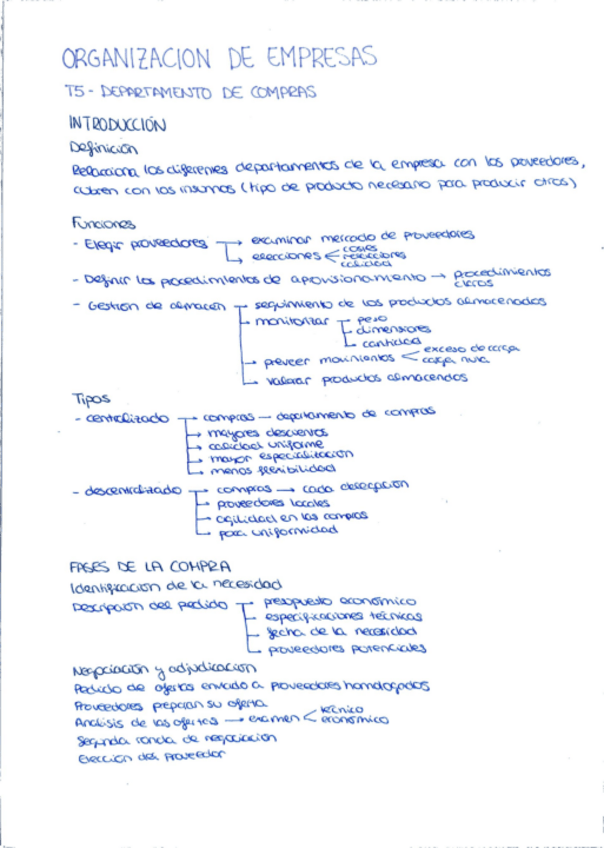 ORGANIZACION DE EMPRESAS
T5 - DEPARTAMENTO DE COMPRAS
INTRODUCCIÓN
Definición
Relacciona los diferentes departamentos de la empresa con los proveedores,
cubren con los insumos (tipo de producto necesario para producir otros)
Funciones
- Elegir proveedores → examinar mercado de proveedores
→ elecciones < costes
relacciones
calidad
- Definir los procedimientos de aprovisionamiento → procedimientos
claros
- Gestión de almacén → seguimiento de los productos almacenados
→ monitorizar → peso
→ dimensiones
→ cantidad
→ preveer movimientos < exceso de carga
carga nula
→ valorar productos almacendos
Tipos
- centralizado → compras → departamento de compras
→ mayores descuentos
→ calidad uniforme
→ mayor especialización
→ menos flexibilidad
- descentralizado → compras → cada delegación
→ proveedores locales
→ agilidad en las compras
→ poca uniformidad
FASES DE LA COMPRA
Identificación de la necesidad
Descripción del pedido → presupuesto económico
→ especificaciones técnicas
→ fecha de la necesidad
→ proveedores potenciales
Negociación y adjudicación
Pedido de ofertas enviado a proveedores homologados
Proveedores preparan su oferta
Análisis de las ofertas → examen < técnico
económico
Segunda ronda de negociación
Elección del proveedor